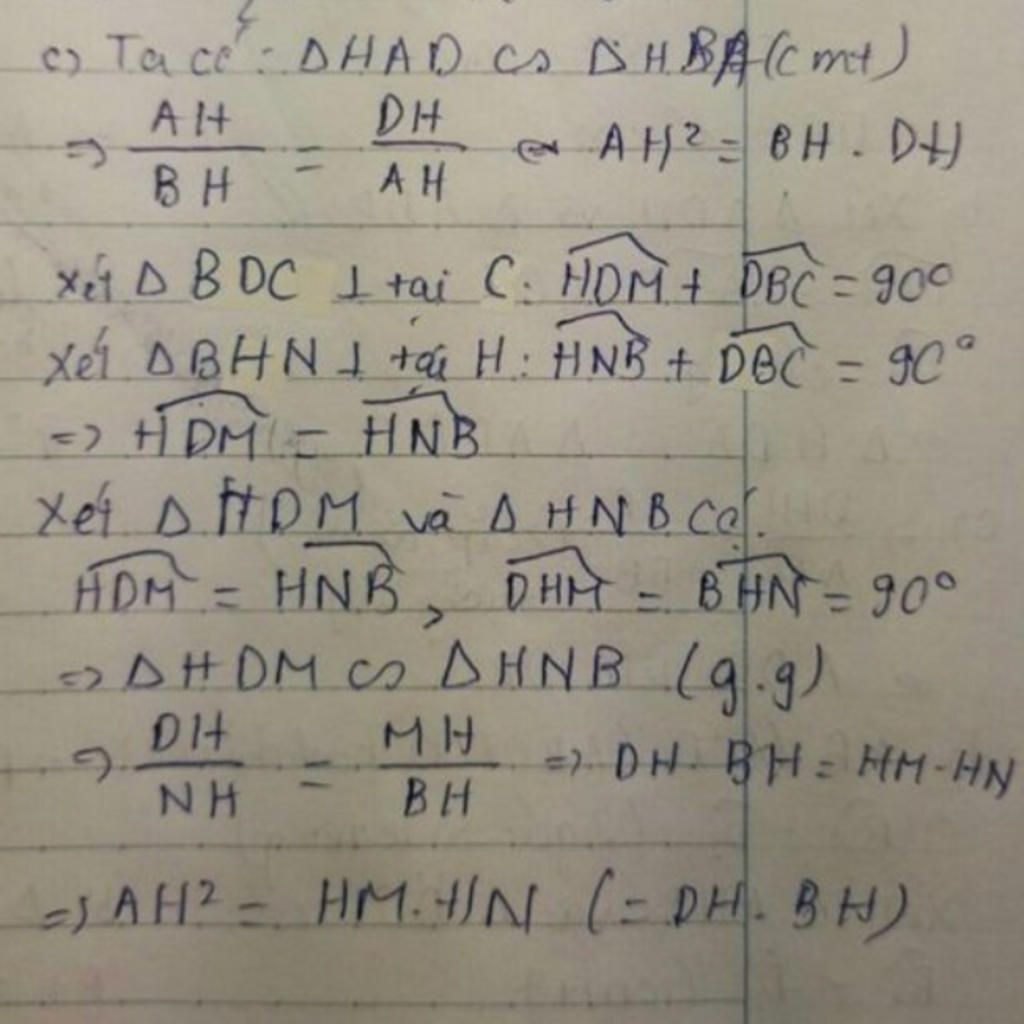 c) Ta có: ΔHAD ∽ ΔHBA (cmt)
=> AH/BH = DH/AH <=> AH² = BH . DH
Xét Δ BDC ⊥ tại C: \widehat{HDM} + \widehat{DBC} = 90°
Xét ΔBHN ⊥ tại H: \widehat{HNB} + \widehat{DBC} = 90°
=> \widehat{HDM} = \widehat{HNB}
Xét Δ HDM và Δ HNB có:
\widehat{HDM} = \widehat{HNB}, \widehat{DHM} = \widehat{BHN} = 90°
=> ΔHDM ∽ ΔHNB (g.g)
=> DH/NH = MH/BH => DH . BH = HM . HN
=> AH² = HM . HN (= DH . BH)